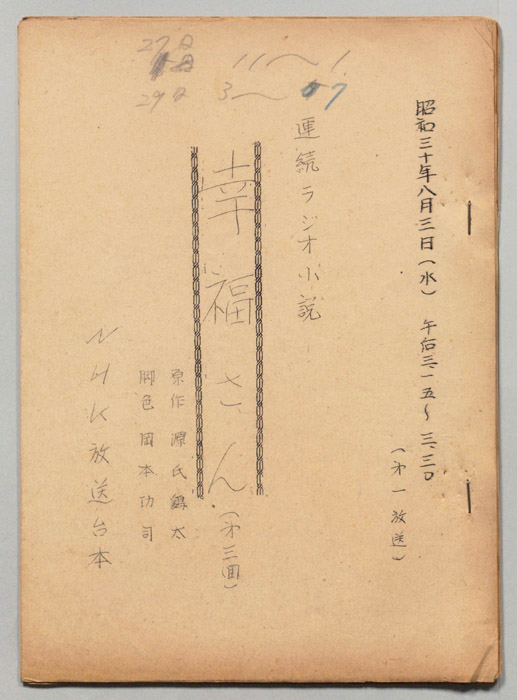 27日 11〜1
29日 3〜7
昭和三十年八月三日(水) 午后三.一五〜三.三〇
(第一放送)
連続ラジオ小説
幸福さん(第三回)
原作 源氏鶏太
脚色 岡本功司
NHK放送台本